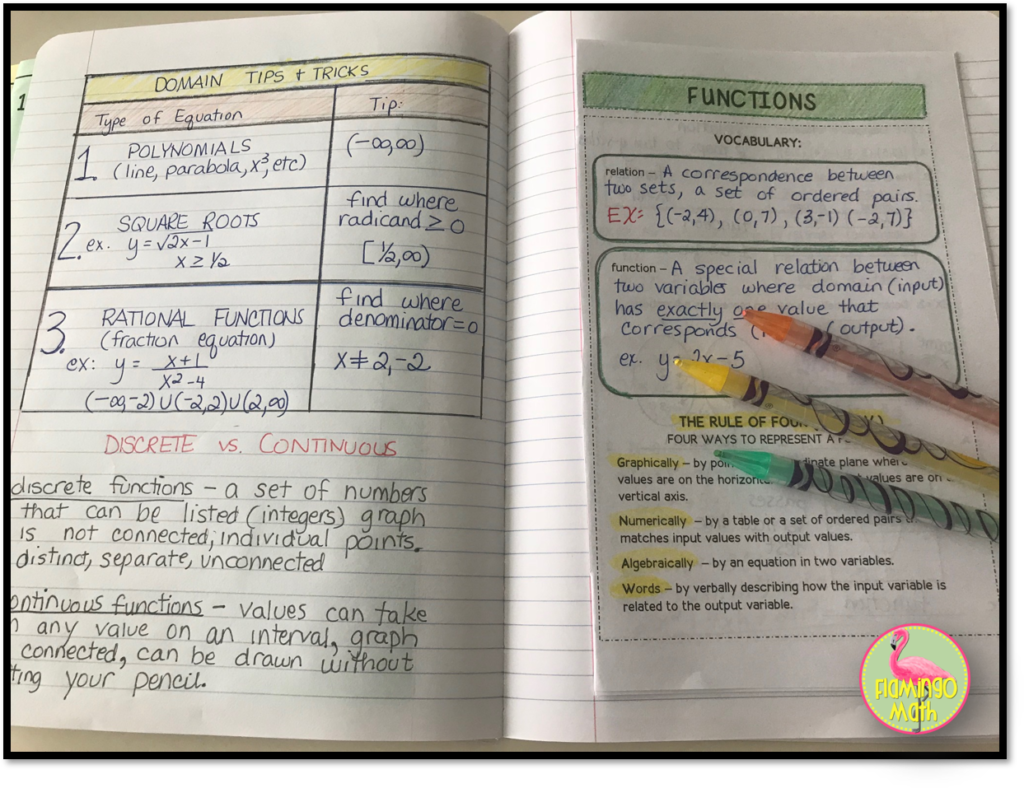 1
DOMAIN TIPS + TRICKS
Type of Equation
Tip:
1. POLYNOMIALS
(line, parabola, x³, etc)
(-∞,∞)
2. SQUARE ROOTS
ex. y = √2x-1
x ≥ 1/2
find where
radicand ≥ 0
[1/2,∞)
3. RATIONAL FUNCTIONS
(fraction equation)
ex: y = x+1
x²-4
(-∞,-2) ∪ (-2,2) ∪ (2,∞)
find where
denominator=0
x≠2,-2
DISCRETE vs. CONTINUOUS
discrete functions - a set of numbers
that can be listed (integers) graph
is not connected, individual points.
distinct, separate, unconnected
ontinuous functions - values can take
n any value on an interval, graph
connected, can be drawn without
ting your pencil.
FUNCTIONS
VOCABULARY:
relation - A correspondence between
two sets, a set of ordered pairs.
EX: {(-2,4), (0,7), (3,-1) (-2,7)}
function - A special relation between
two variables where domain (input)
has exactly one value that
corresponds ( output).
ex. y= 2x-5
THE RULE OF FOU
FOUR WAYS TO REPRESENT A F
Graphically – by poi inate plane whe
values are on the horizont values are on
vertical axis.
Numerically – by a table or a set of ordered pairs
matches input values with output values.
Algebraically – by an equation in two variables.
Words – by verbally describing how the input variable is
related to the output variable.
Flamingo
Math